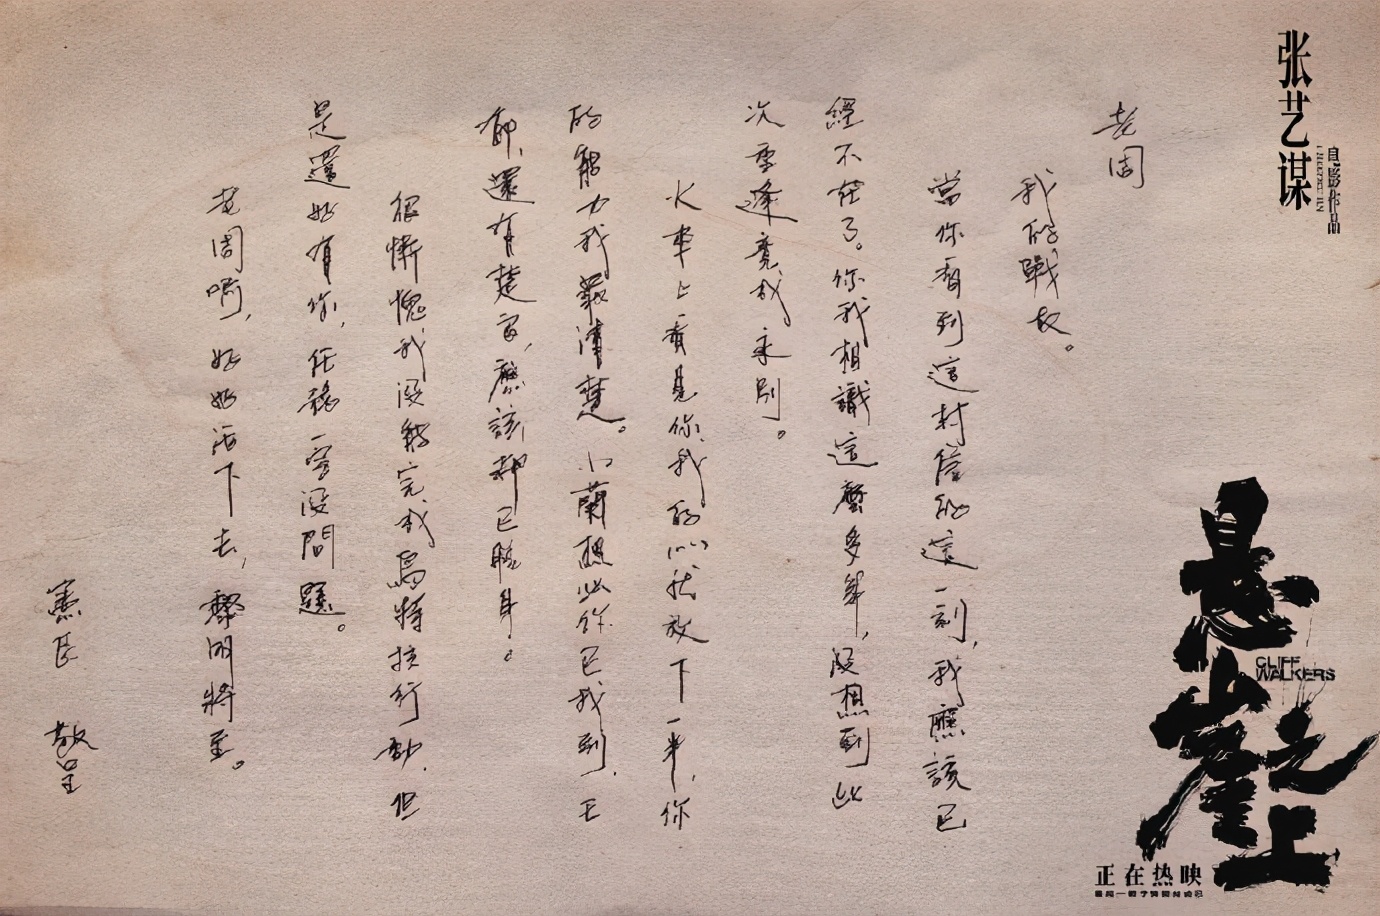 张艺谋
电影作品
老周
我的戰友。
當你看到這封信的這一刻，我應該已
經不在了。你我相識這麼多年，沒想到此
次重逢竟成永別。
火車上看見你，我的心就放下一半，你
的能力我最清楚。小蘭想必你已找到，王
郁，還有楚家，應該都已脫身。
很慚愧我沒能完成烏特拉行動，但
是還好有你，任務一定沒問題。
老周啊，好好活下去，黎明將至。
憲臣 敬呈
悬崖之上
CLIFF
WALKERS
正在热映